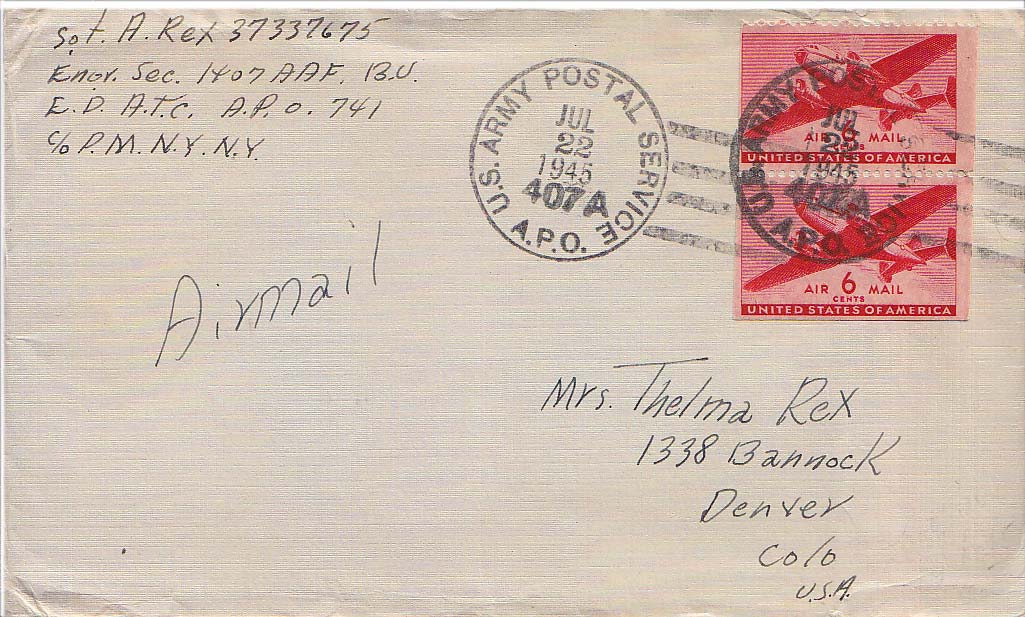 Sgt. A. Rex 37337675
Engr. Sec. 1407 AAF. B.U.
E.D. A.T.C. A.P.O. 741
c/o P.M. N.Y. N.Y.
U.S. ARMY POSTAL SERVICE
JUL
22
1945
407A
A.P.O.
U.S. ARMY
JUL
1945
407A
A.P.O.
AIR 6 MAIL
UNITED STATES OF AMERICA
AIR 6 MAIL
CENTS
UNITED STATES OF AMERICA
Airmail
Mrs. Thelma Rex
1338 Bannock
Denver
Colo
U.S.A.